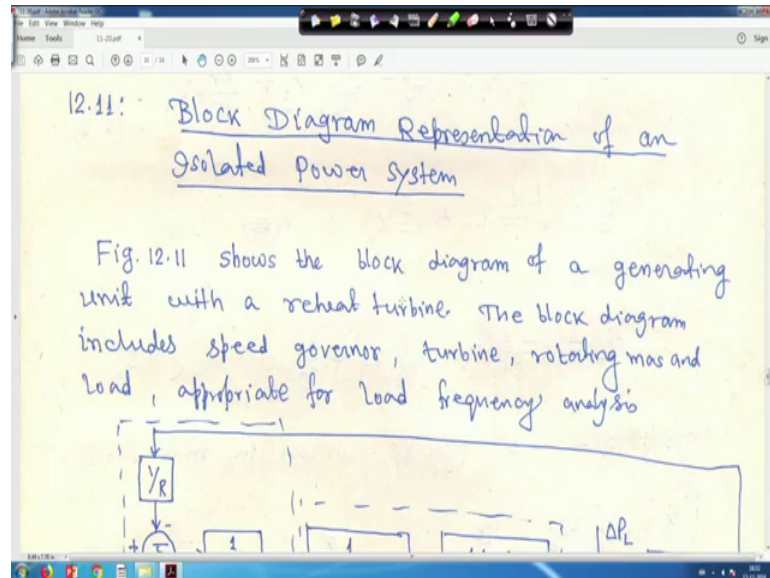 11-20.pdf - Adobe Acrobat Reader DC
File Edit View Window Help
Home Tools 11-20.pdf × Sign
12.11: Block Diagram Representation of an
Isolated Power System
Fig. 12.11 shows the block diagram of a generating
unit with a reheat turbine. The block diagram
includes speed governor, turbine, rotating mas and
load, appropriate for load frequency analysis
1/R
-
+ Σ 1 1 ΔPL
8.49 x 7.78 in